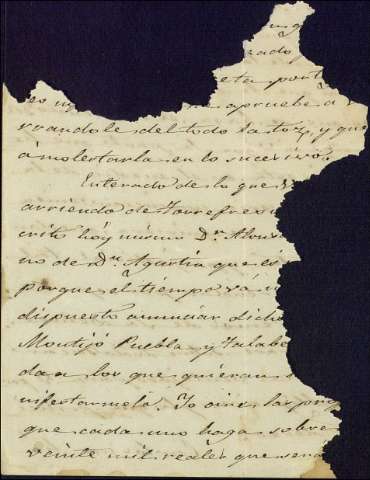 apruebe a
rrandole del todo la toz, y que
á molestarla en lo sucesivo.
Enterado de lo que
arriendo de Torrefres
crito hoy mismo Dn. Alva
no de Dn. Agustin que es
porque el tiempo vá
dispuesto anunciar dicho
Montijo Puebla y Talabe
da a los que quieran
nifestarmela. Yo oiré las pro
que cada uno haga sobre
veinte mil reales que sera